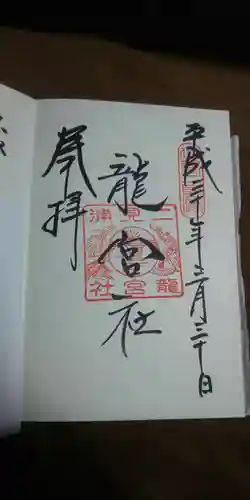 平成三十年十二月三十日
龍宮社
奉拝
二見浦
龍宮社